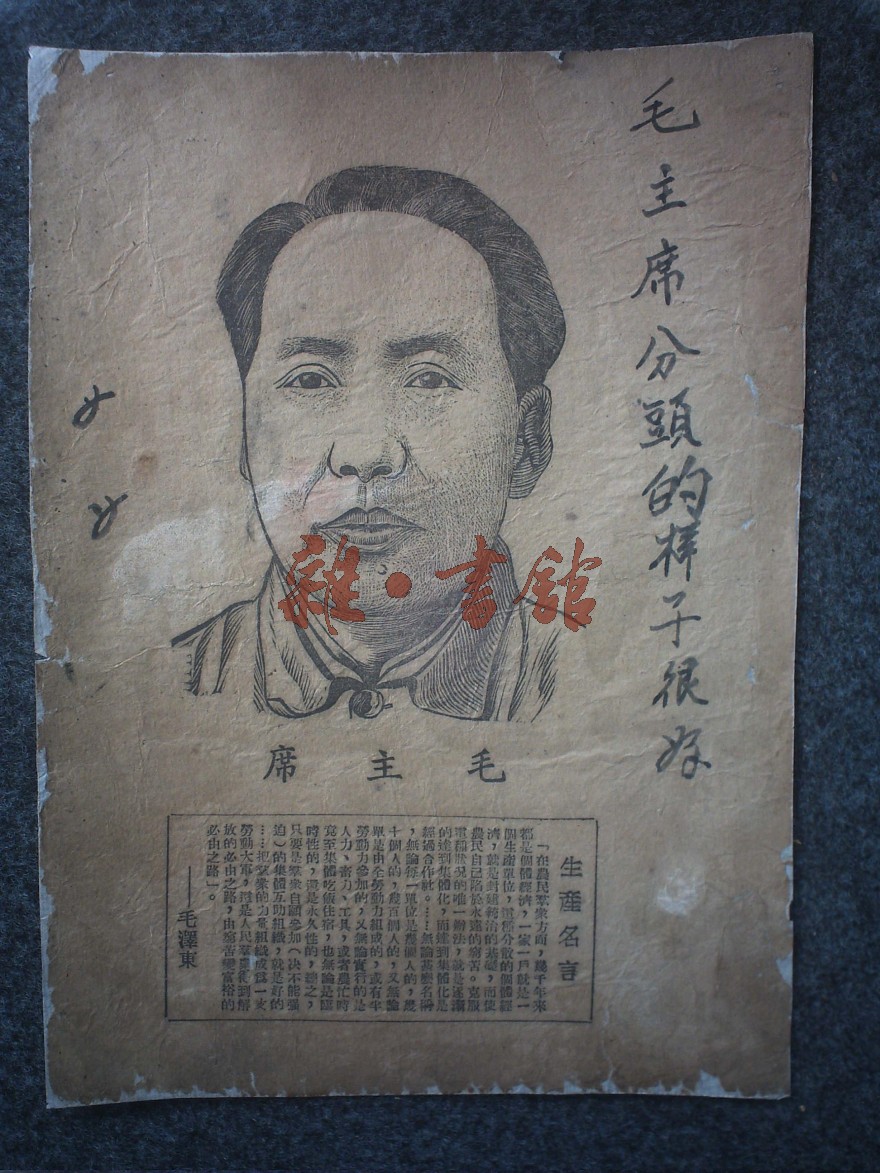 毛主席分頭的样子很好
毛主席
生產名言
「在農民羣衆方面，幾千年來
都是個體經濟，一家一戶就是一
個生產單位，這種分散的個體經
濟，就是封建統治的基礎，而使
農民自己陷於永遠的窮苦。克服
這種狀況的唯一辦法，就是逐漸
的達到集體化，而達到集體化是
經過合作社。……無論甚麼名稱
，無論每一單位是幾個人的，幾
十個人的，幾百個人的，又無論
單是由全勞動力組成的，或有半
勞動力參加的，又無論實行的是
人力、畜力、工具，或者農忙時
竟至集體吃飯住宿，也無論是臨
時性的，還是永久性的，總之，
只要是羣衆自願參加（決不能強
迫）的集體互助組織，就是好的
……把羣衆的力量組織成爲一支
勞動大軍，這是人民羣衆得到解
放的必由之路，由窮苦變富裕的
必由之路」。
——毛澤東
雜·書館